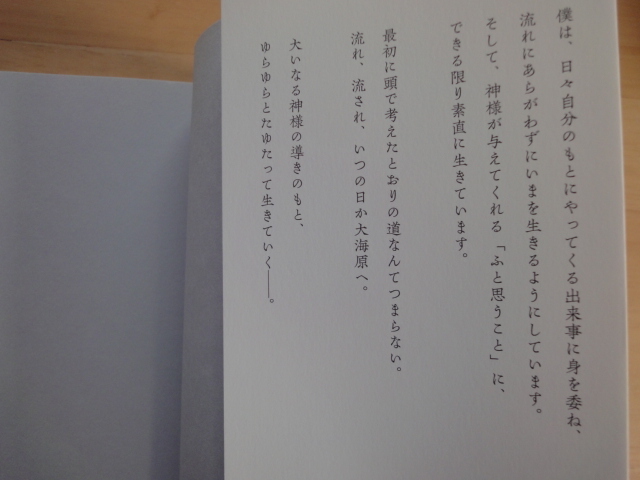 僕は、日々自分のもとにやってくる出来事に身を委ね、
流れにあらがわずにいまを生きるようにしています。
そして、神様が与えてくれる「ふと思うこと」に、
できる限り素直に生きています。
最初に頭で考えたとおりの道なんてつまらない。
流れ、流され、いつの日か大海原へ。
大いなる神様の導きのもと、
ゆらゆらとたゆたって生きていく――。